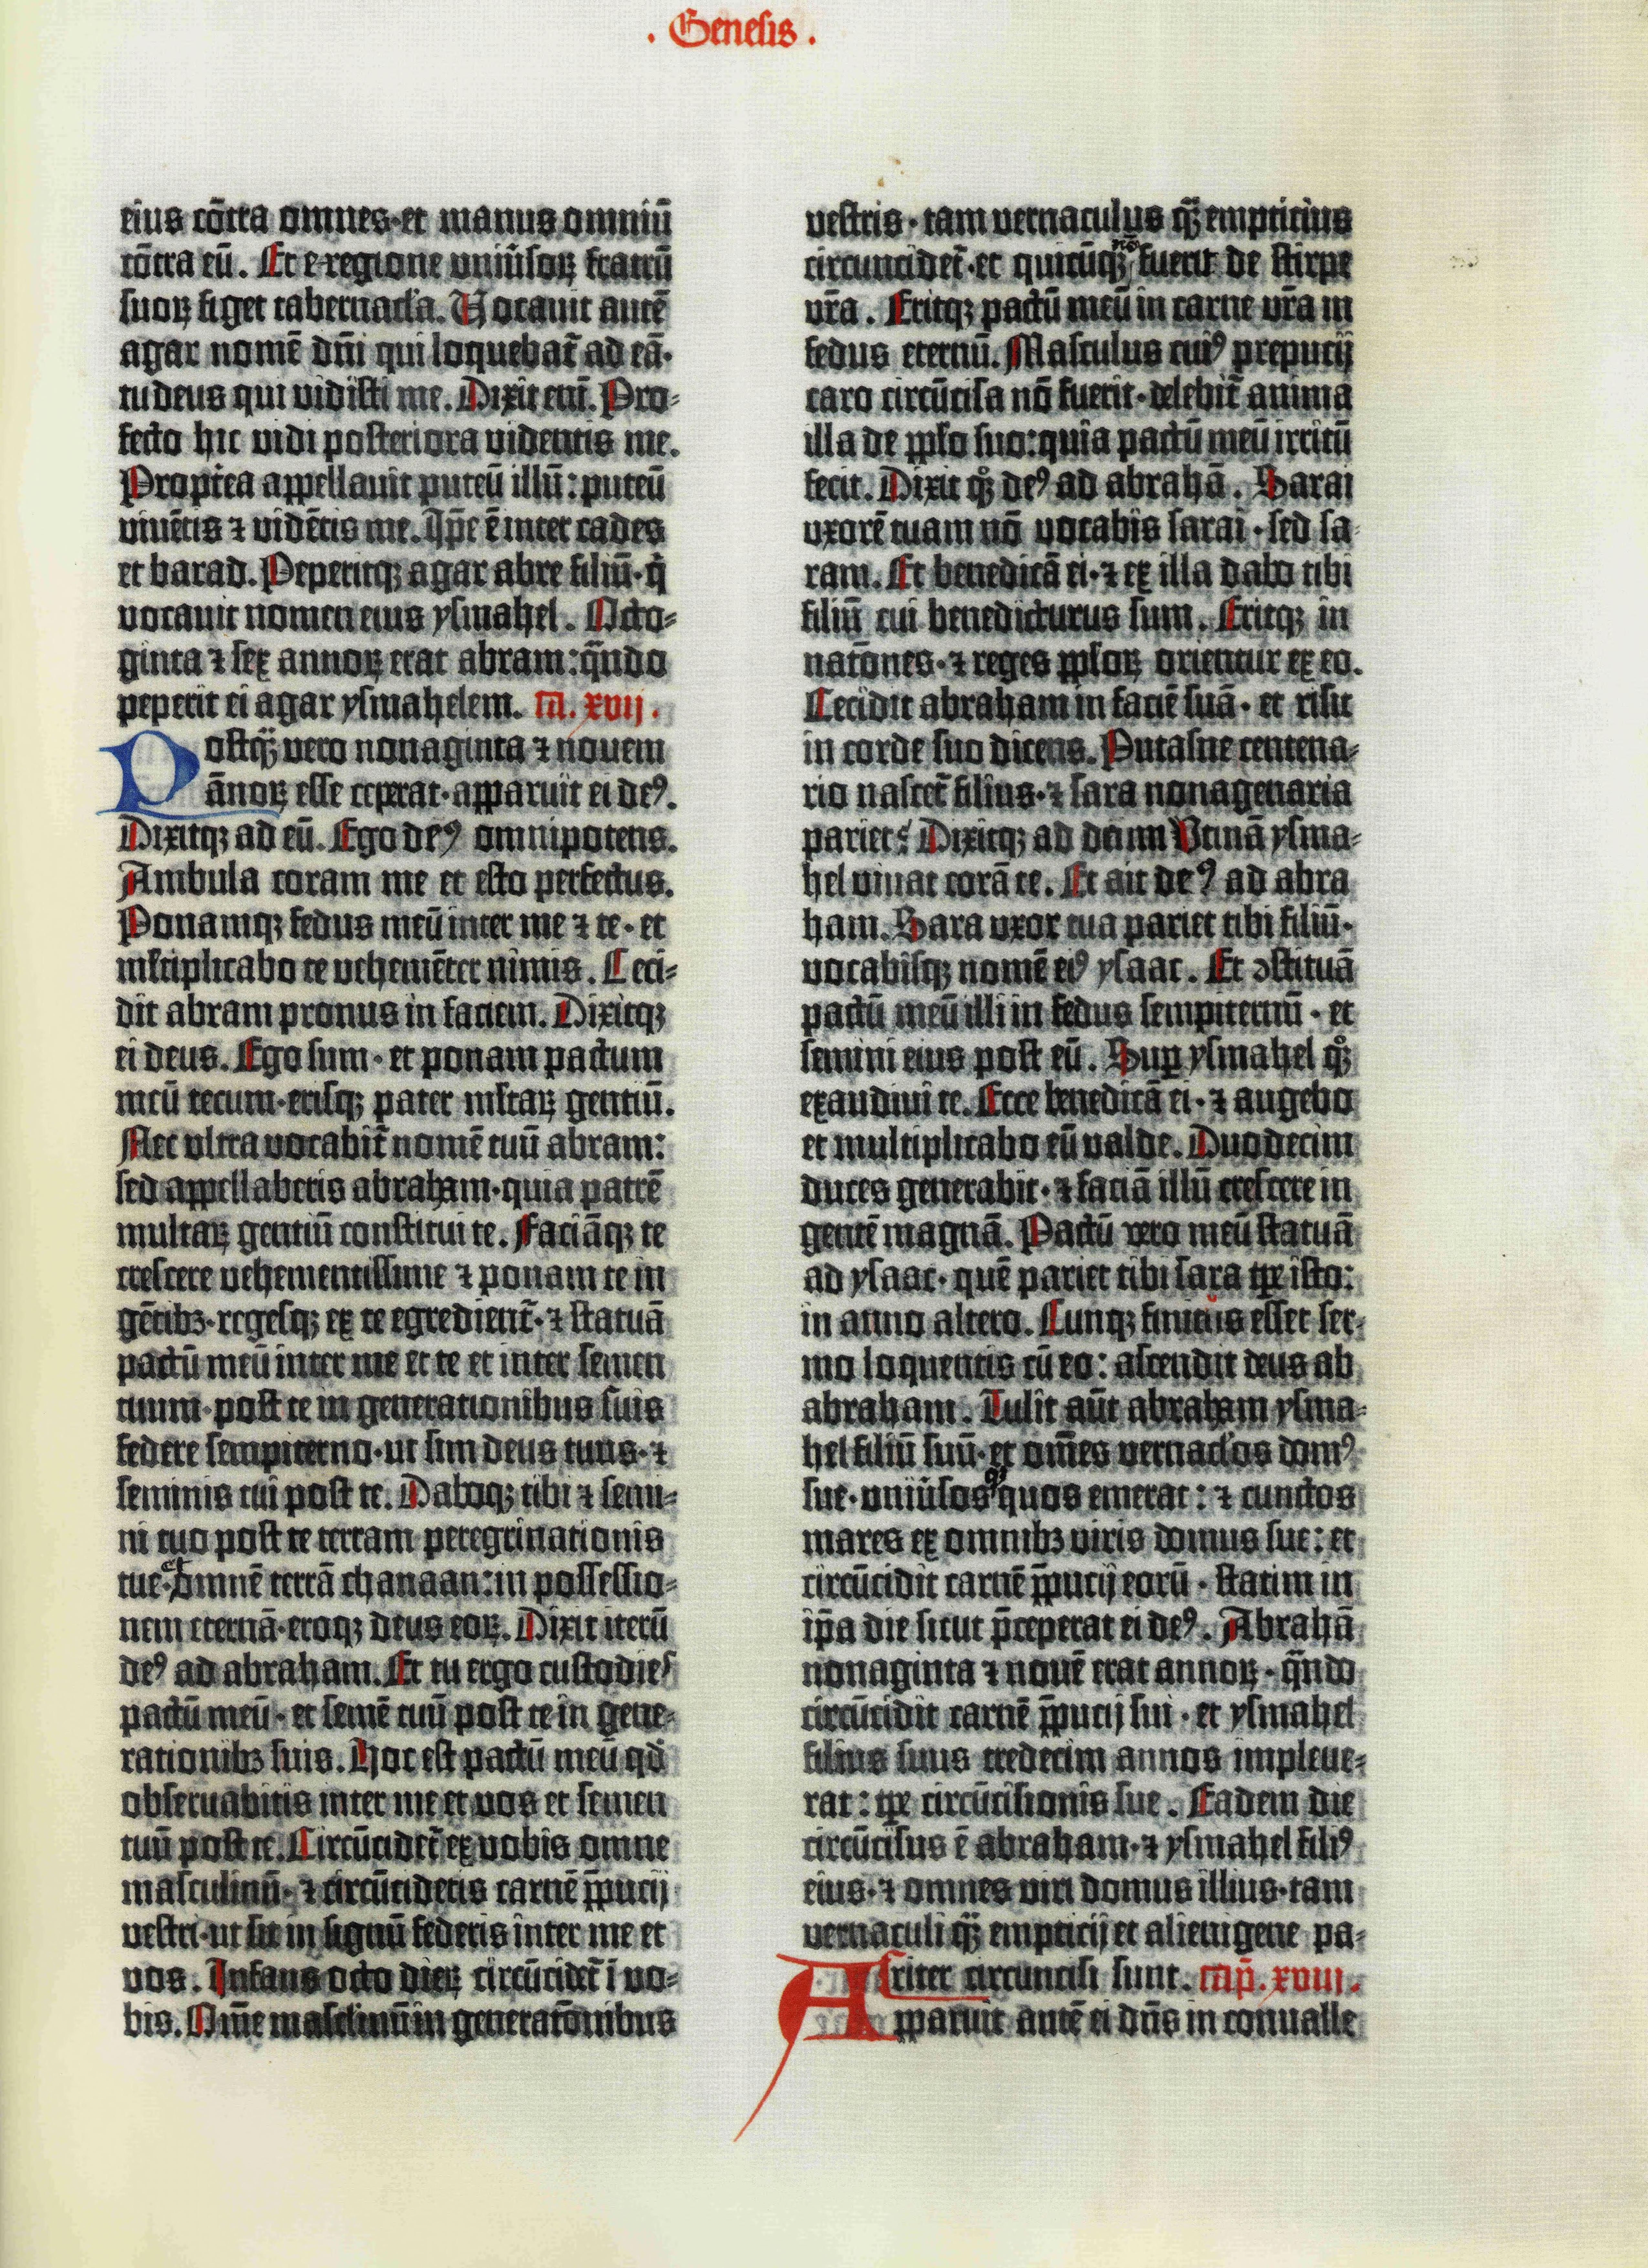 . Genesis .
eius cōtra omnes·et manus omniū
cōtra eū. Et e·regione uniūsoꝝ fratrū
suoꝝ figet tabernacl̕a. Vocauit autē
agar nomē dn̄i qui loquebat̄ ad eā·
tu deus qui vidisti me. Dixit eni̅. Pro⸗
fecto hic vidi posteriora videntis me.
Propt̄ea appellauit puteū illū: puteū
viuētis ⁊ vidētis me. Ip̄e ē inter cades
et barad. Peperitqꝫ agar abre filiū·q̇
vocauit nomen eius ysmahel. Octo⸗
ginta ⁊ sex annoꝝ erat abram: qn̄do
peperit ei agar ysmahelem. ca. xvij.
Postqᷓ vero nonaginta ⁊ nouem
ānoꝝ esse ceperat·apparuit ei deꝰ.
Dixitqꝫ ad eū. Ego deꝰ omnipotens.
Ambula coram me et esto perfectus.
Ponamqꝫ fedus meū inter me ⁊ te·et
ml̕tiplicabo te vehemēter nimis. Ceci⸗
dit abram pronus in faciem. Dixitqꝫ
ei deus. Ego sum·et ponam pactum
meū tecum·erisqꝫ pater ml̕taꝝ gentiū.
Nec ultra vocabit̄ nomē tuū abram:
sed appellaberis abraham·quia patrē
multaꝝ gentiū constitui te. Faciāqꝫ te
crescere vehementissime ⁊ ponam te in
gētibꝫ·regesqꝫ ex te egredient̄·⁊ statuā
pactū meū inter me et te et inter semen
tuum post te in generationibus suis
federe sempiterno·ut sim deus tuus·⁊
seminis tui post te. Daboqꝫ tibi ⁊ semi⸗
ni tuo post te terram peregrinationis
tue·et omnē terrā chanaan: in possessio⸗
nem eternā·eroqꝫ deus eoꝝ. Dixit iterū
deꝰ ad abraham. Et tu ergo custodies
pactū meū·et semē tuū post te in gene⸗
rationibꝫ suis. Hoc est pactū meū qd̄
obseruabitis inter me et vos et semen
tuū post te. Circūcidet̄ ex vobis omne
masculinū·⁊ circūcidetis carnē p̄pucij
vestri·ut sit in signū federis inter me et
vos. Infans octo dieꝝ circūcidet̄ ī vo⸗
bis. Om̄e mascl̕inū in generatōnibus
vestris·tam vernaculus qᷓ empticius
circuncidet̄·et quicūqꝫ nō fuerit de stirpe
vr̄a. Eritqꝫ pactū meū in carne vr̄a in
fedus eternū. Masculus cuiꝰ preputij
caro circūcisa nō fuerit·delebit̄ anima
illa de pp̄lo suo: quia pactū meū irritū
fecit. Dixit qͦꝫ deꝰ ad abrahā. Sarai
uxorē tuam nō vocabis sarai·sed sa⸗
ram. Et benedicā ei·⁊ ex illa dabo tibi
filiū cui benedicturus sum. Eritqꝫ in
natōnes·⁊ reges pp̄loꝝ orientur ex eo.
Cecidit abraham in faciē suā·et risit
in corde suo dicens. Putasne centena⸗
rio nascet̄ filius·⁊ sara nonagenaria
pariet? Dixitqꝫ ad deum Utinā ysma⸗
hel vivat corā te. Et ait deꝰ ad abra
ham. Sara uxor tua pariet tibi filiū·
vocabisqꝫ nomē eiꝰ ysaac. Et ↄstituā
pactū meū illi in fedus sempiternū·et
semini eius post eū. Suꝑ ysmahel qͦꝫ
exaudiui te. Ecce benedicā ei·⁊ augebo
et multiplicabo eū valde. Duodecim
duces generabit·⁊ faciā illū crescere in
gentē magnā. Pactū vero meū statuā
ad ysaac·quē pariet tibi sara tꝑe isto:
in anno altero. Cunqꝫ finitus esset ser⸗
mo loquentis cū eo: ascendit deus ab
abraham. Tulit aūt abraham ysma⸗
hel filiū suū·et om̄es vernacl̕os domꝰ
sue·uniūsosqꝫ quos emerat: ⁊ cunctos
mares ex omnibꝫ viris domus sue: et
circūcidit carnē p̄pucij eorū·statim in
ip̄a die sicut p̄ceperat ei deꝰ. Abrahā
nonaginta ⁊ nouē erat annoꝝ·qn̄do
circūcidit carnē p̄pucij sui·et ysmahel
filius suus tredecim annos impleue⸗
rat: tꝑe circūcisionis sue. Eadem die
circūcisus ē abraham·⁊ ysmahel filiꝰ
eius·⁊ omnes viri domus illius·tam
vernaculi qᷓ empticij et alienigene pa⸗
riter circuncisi sunt. cap̄. xviii.
Apparuit autē ei dn̄s in conualle